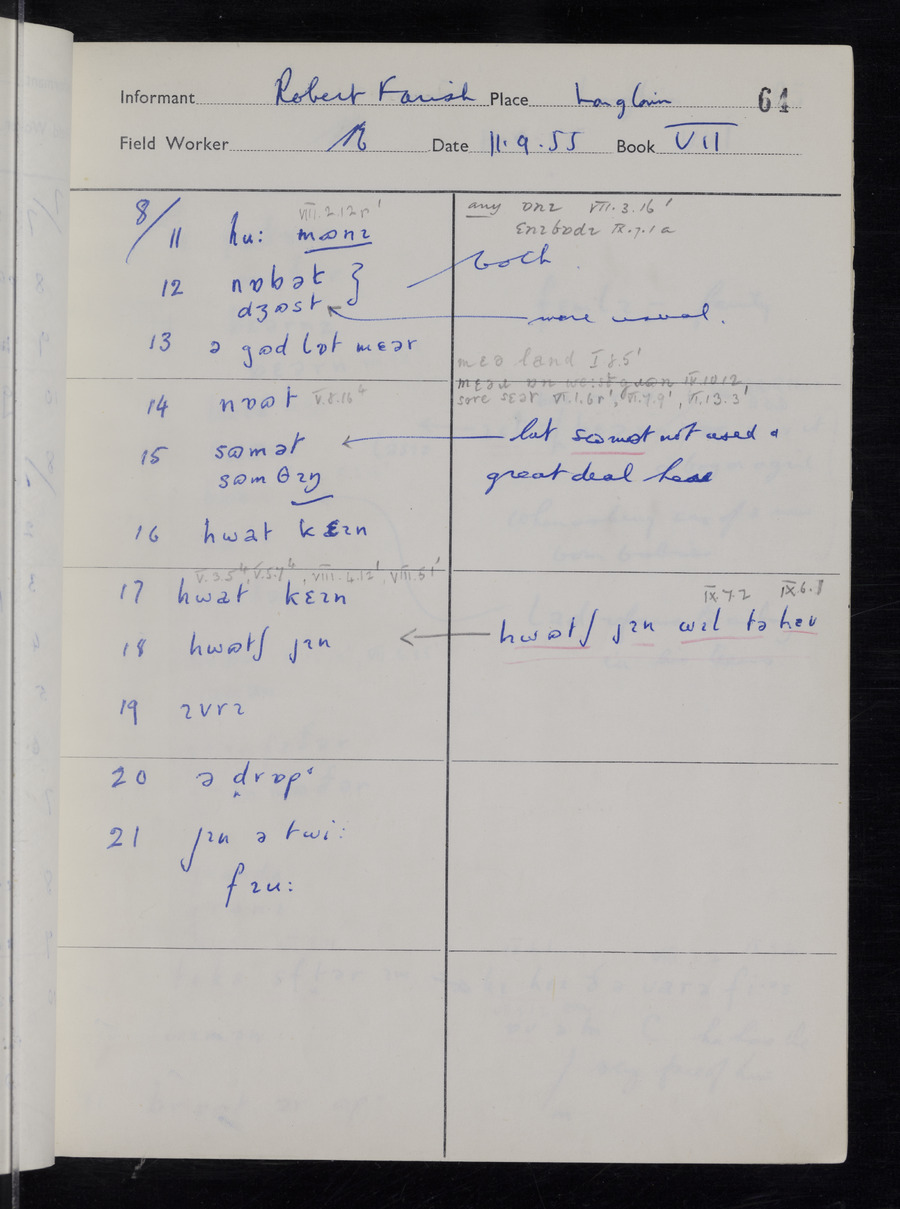 Informant Robert Farish Place Longtown 64
Field Worker Date 11.9.55 Book VII
8/
VIII.2.12r'
11 hu: mɷnɪ
any ɒnɪ VII.3.16'
ɛnɪbɒdɪ IX.7.1a
12 nɒbət } both.
dʒɷst more usual.
13 ə gɷd lɒt mɛər
mɛə land I.8.5'
14 nɒɷt V.8.16⁴
sore sɛər VI.1.6r', VI.7.9', VI.13.3'
15 sɷmət but sɷmət not used a
sɷmθɪŋ great deal here
16 hwat kɛɪn
V.3.5⁴, V.5.7⁴, VIII.4.12', VIII.5.1'
17 hwat kɛɪn
IX.7.2 IX.6.1
18 hwɷtʃ jɪn hwɷtʃ jɪn wɪl tə hɛv
19 ɪvrɪ
20 ə drɒp
21 jɪn ə twi:
fɪu: